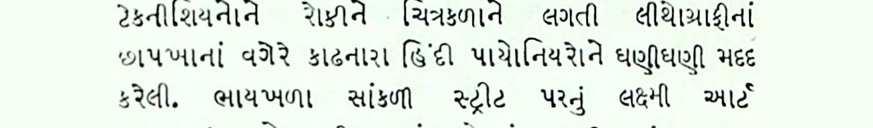 ટેકનીશિયનોને રોકીને ચિત્રકળાને લગતી લીથોગ્રાફીનાં
છાપખાનાં વગેરે કાઢનારા હિંદી પાયોનિયરોને ઘણીઘણી મદદ
કરેલી. ભાયખળા સાંકળી સ્ટ્રીટ પરનું લક્ષ્મી આર્ટ